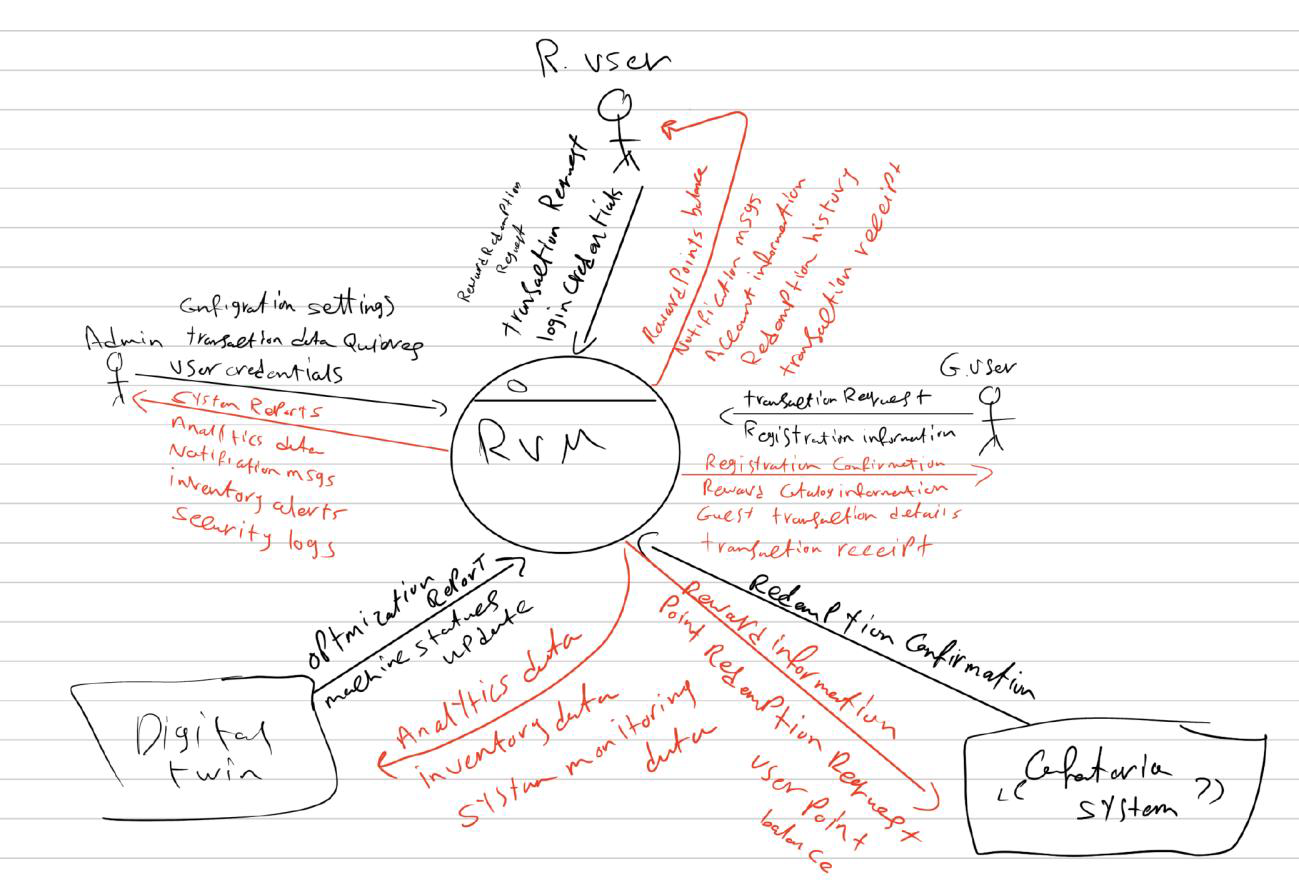 R. user
Reward Redemption
Request
transaction Request
login credentials
Reward Points balance
Notification msgs
Account information
Redemption history
transaction receipt
Configration settings
Admin transaction data
user credentials
System Reports
Analytics data
Notification msgs
inventory alerts
Security logs
0
RVM
G. user
transaction Request
Registration information
Registration Confirmation
Reward Catalog information
Guest transaction details
transaction receipt
optmization
Report
machine statues
update
Analytics data
inventory data
System monitoring
data
Redemption Confirmation
Reward information
Point Redemption Request
user point
balance
Digital
twin
Cafataria
"system"